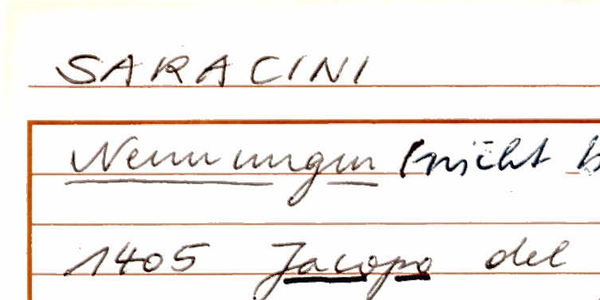 SARACINI
Nennungen (nicht
1405 Jacopo del